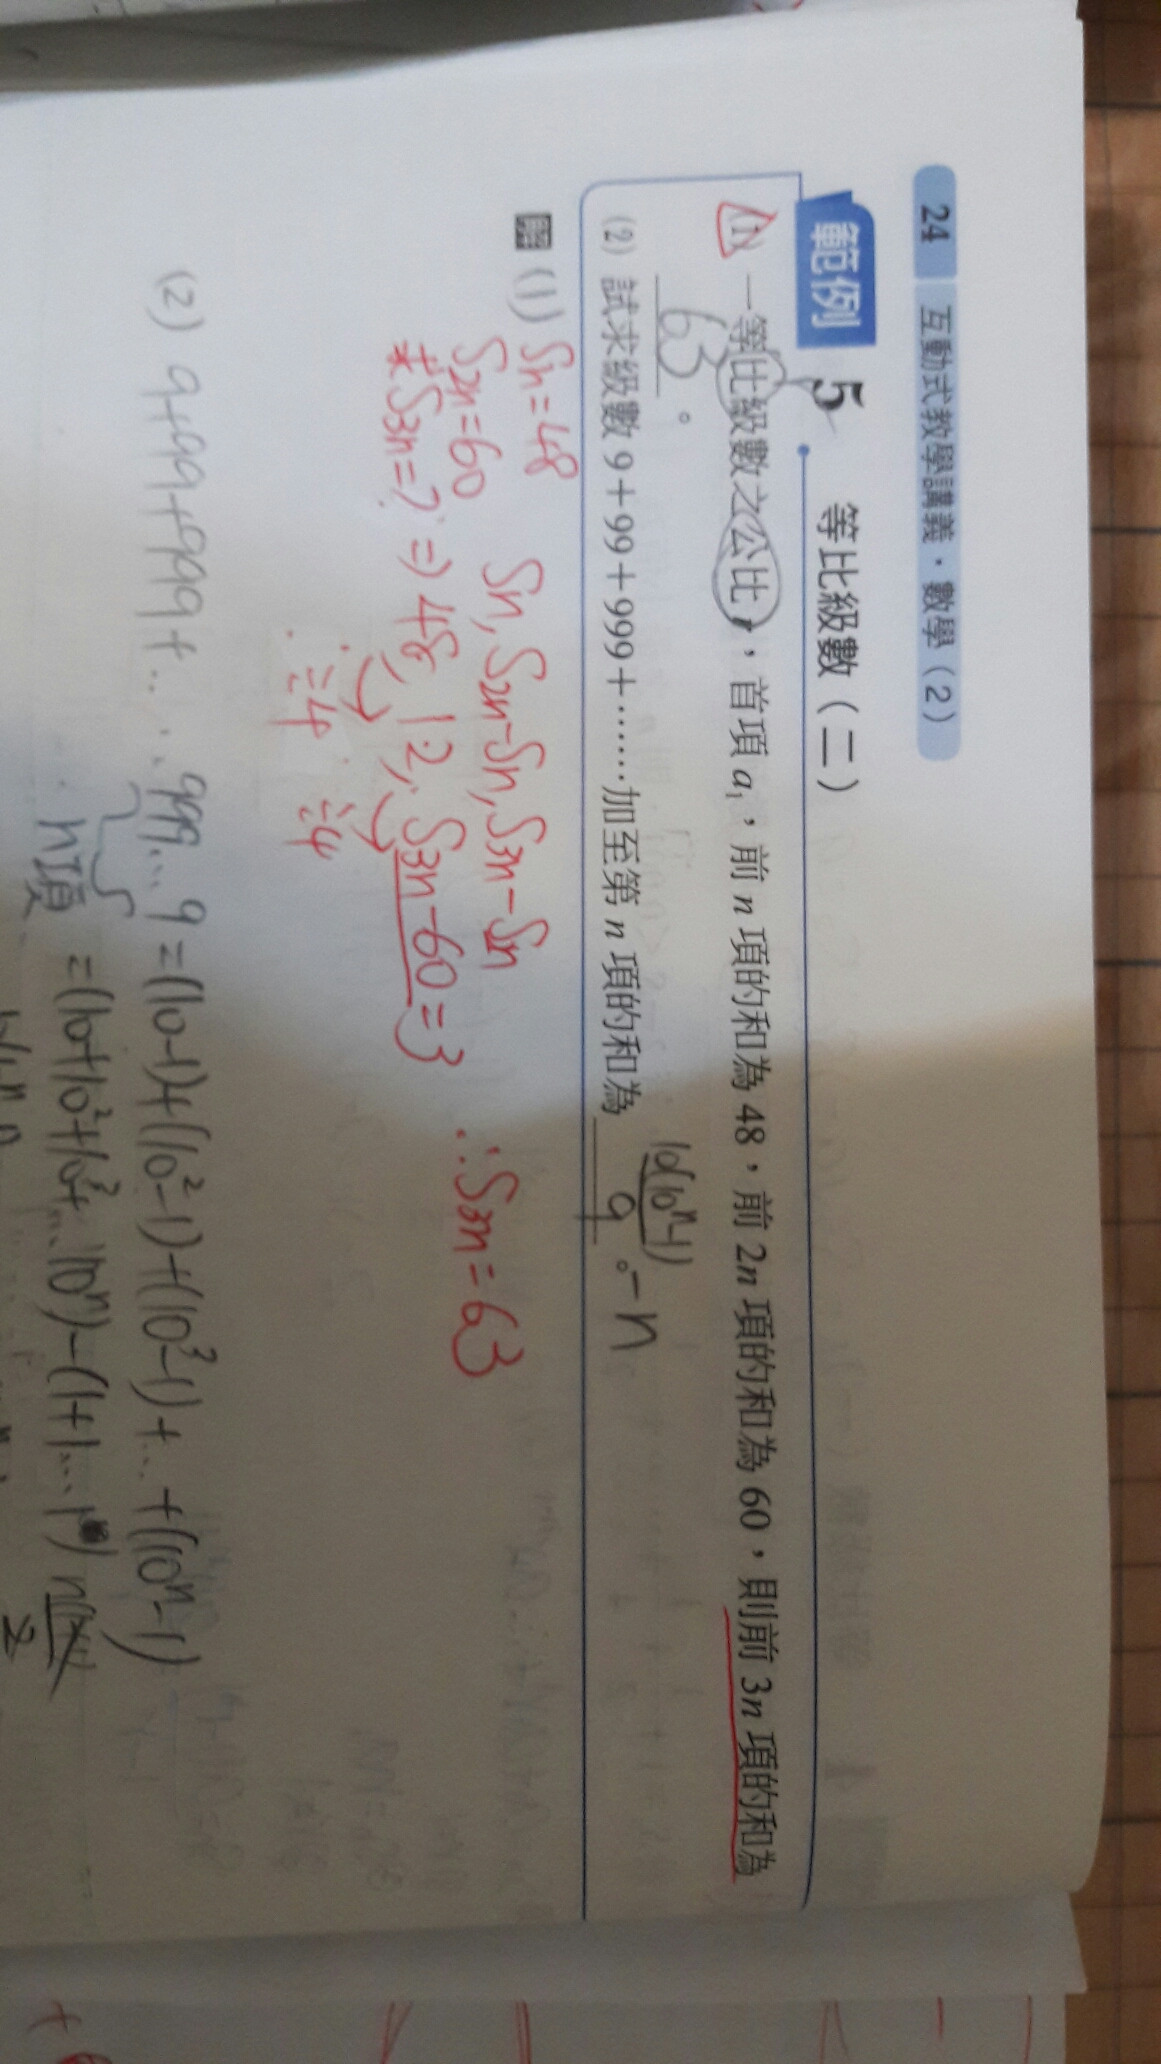 24 互動式教學講義・數學(2)
範例 5 等比級數(二)
(1) 一等比級數之公比 r,首項 a₁,前 n 項的和為 48,前 2n 項的和為 60,則前 3n 項的和為
63 。
(2) 試求級數 9+99+999+……加至第 n 項的和為 10(10ⁿ-1)/9 。-n
(1) Sn=48
S2n=60 Sn, S2n-Sn, S3n-Sn
求S3n=? ⇒ 48, 12, S3n-60=3 ∴S3n=63
÷4 ÷4
(2) 9+99+999+..... 999...9 =(10-1)+(10²-1)+(10³-1)+...+(10ⁿ-1)
n項 =(10+10²+10³+...10ⁿ)-(1+1...1)